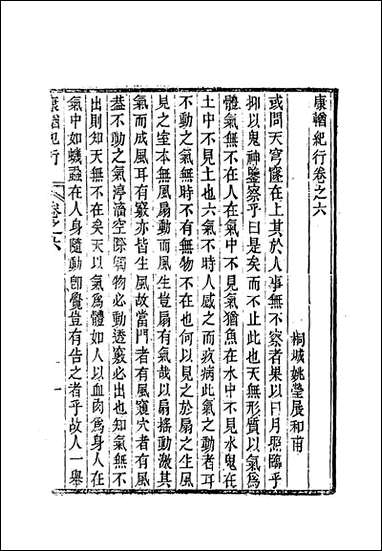 康輶紀行卷之六
桐城姚瑩展和甫
或問天穹窿在上其於人事無不察者果以日月照臨乎
抑以鬼神鑒察乎曰是矣而不止此也天無形質以氣爲
體氣無不在人在氣中不見氣猶魚在水中不見水鬼在
土中不見土也六氣不時人感之而疚病此氣之動者耳
不動之氣無時不有無物不在也何以見之於扇之生風
見之室本無風扇動而風生豈扇有氣哉以扇搖動激其
氣而成風耳有竅亦皆生風故當門者有風窺穴者有風
葢不動之氣渟滀空際獨物必動透竅必出也知氣無不
出則知天無不在矣天以氣爲體如人以血肉爲身人在
氣中如蟣蝨在人身隨動卽覺豈有告之者乎故人一舉
康輶紀行
卷之六
一